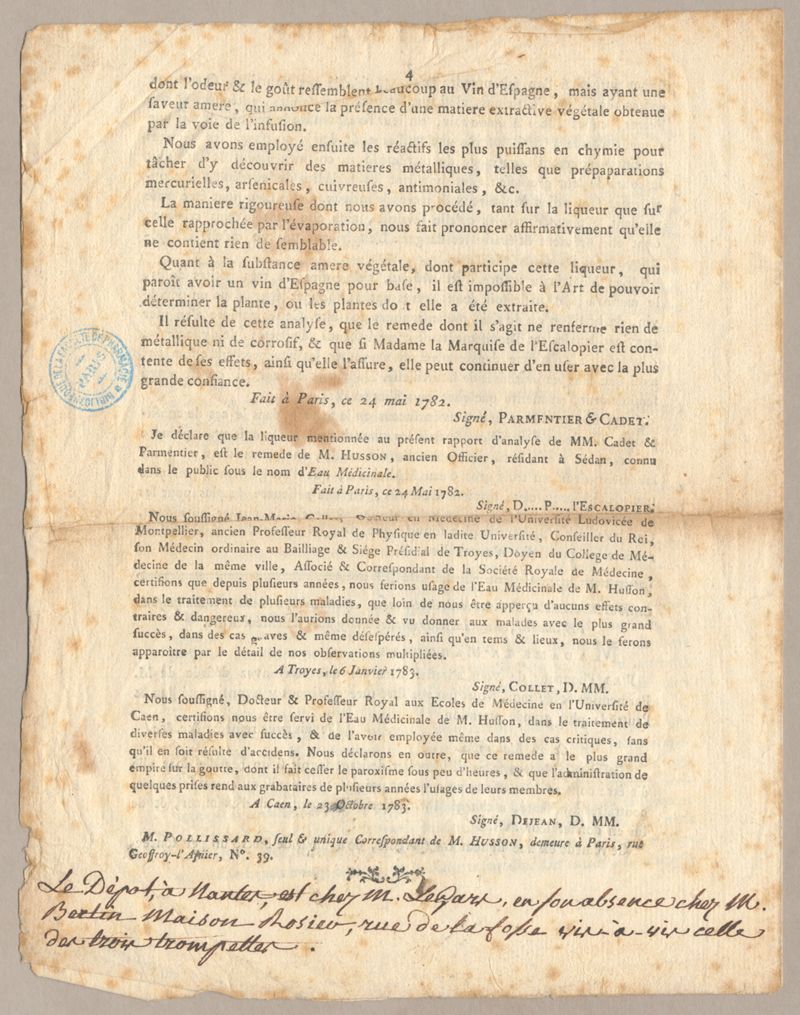 4
dont l'odeur & le goût ressemblent beaucoup au Vin d'Espagne, mais ayant une
saveur amere, qui annonce la présence d'une matiere extractive végétale obtenue
par la voie de l'infusion.
Nous avons employé ensuite les réactifs les plus puissans en chymie pour
tâcher d'y découvrir des matieres métalliques, telles que prépaparations
mercurielles, arsenicales, cuivreuses, antimoniales, &c.
La maniere rigoureuse dont nous avons procédé, tant sur la liqueur que sur
celle rapprochée par l'évaporation, nous fait prononcer affirmativement qu'elle
ne contient rien de semblable.
Quant à la substance amere végétale, dont participe cette liqueur, qui
paroît avoir un vin d'Espagne pour base, il est impossible à l'Art de pouvoir
déterminer la plante, ou les plantes do t elle a été extraite.
Il résulte de cette analyse, que le remede dont il s'agit ne renferme rien de
métallique ni de corrosif, & que si Madame la Marquise de l'Escalopier est con-
tente de ses effets, ainsi qu'elle l'assure, elle peut continuer d'en user avec la plus
grande confiance.
Fait à Paris, ce 24 mai 1782.
Signé, PARMENTIER & CADET.
Je déclare que la liqueur mentionnée au présent rapport d'analyse de MM. Cadet &
Parmentier, est le remede de M. HUSSON, ancien Officier, résidant à Sédan, connu
dans le public sous le nom d'Eau Médicinale.
Fait à Paris, ce 24 Mai 1782.
Signé, D..... P..... l'ESCALOPIER.
Nous soussigné Jean-Marie Collet, Docteur en Médecine de l'Université Ludovicée de
Montpellier, ancien Professeur Royal de Physique en ladite Université, Conseiller du Roi,
son Médecin ordinaire au Bailliage & Siége Présidial de Troyes, Doyen du College de Mé-
decine de la même ville, Associé & Correspondant de la Société Royale de Médecine,
certifions que depuis plusieurs années, nous ferions usage de l'Eau Médicinale de M. Husson,
dans le traitement de plusieurs maladies, que loin de nous être apperçu d'aucuns effets con-
traires & dangereux, nous l'aurions donnée & vu donner aux malades avec le plus grand
succès, dans des cas graves & même désespérés, ainsi qu'en tems & lieux, nous le ferons
apparoître par le détail de nos observations multipliées.
A Troyes, le 6 Janvier 1783.
Signé, COLLET, D. MM.
Nous soussigné, Docteur & Professeur Royal aux Ecoles de Médecine en l'Université de
Caen, certifions nous être servi de l'Eau Médicinale de M. Husson, dans le traitement de
diverses maladies avec succès, & de l'avoir employée même dans des cas critiques, sans
qu'il en soit résulte d'accidens. Nous déclarons en outre, que ce remede a le plus grand
empire sur la goutte, dont il fait cesser le paroxisme sous peu d'heures, & que l'administration de
quelques prises rend aux grabataires de plusieurs années l'usages de leurs membres.
A Caen, le 23 Octobre 1783.
Signé, DEJEAN, D. MM.
M. POLLISSARD, seul & unique Correspondant de M. HUSSON, demeure à Paris, rue
Geoffroy-l'Asnier, N°. 39.
Le Dépot, à Nantes, est chez M. LeGars, en son absence chez M.
Bertin Maison Rosier, rue de la fosse vis-à-vis celle
des trois trompettes.
BIBLIOTHEQUE DE LA FACULTÉ DE PHARMACIE
PARIS